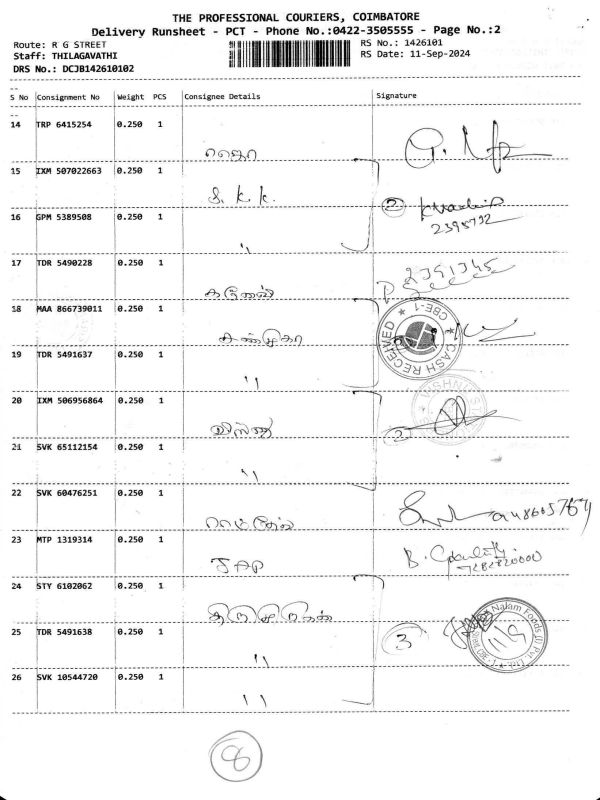 THE PROFESSIONAL COURIERS, COIMBATORE
Delivery Runsheet - PCT - Phone No.:0422-3505555 - Page No.:2
Route: R G STREET
RS No.: 1426101
Staff: THILAGAVATHI
RS Date: 11-Sep-2024
DRS No.: DCJB142610102
S No Consignment No Weight PCS Consignee Details Signature
14 TRP 6415254 0.250 1
15 IXM 507022663 0.250 1
S. K. K.
16 GPM 5389508 0.250 1
2
2395792
"
17 TDR 5490228 0.250 1
2391345
18 MAA 866739011 0.250 1
CASH RECEIVED CBE-1
19 TDR 5491637 0.250 1
"
20 IXM 506956864 0.250 1
2
21 SVK 65112154 0.250 1
"
22 SVK 60476251 0.250 1
23 MTP 1319314 0.250 1
JAP
24 STY 6102062 0.250 1
3
Nalam Foods (I) Pvt. Ltd.
11/9
25 TDR 5491638 0.250 1
"
26 SVK 10544720 0.250 1
"
8